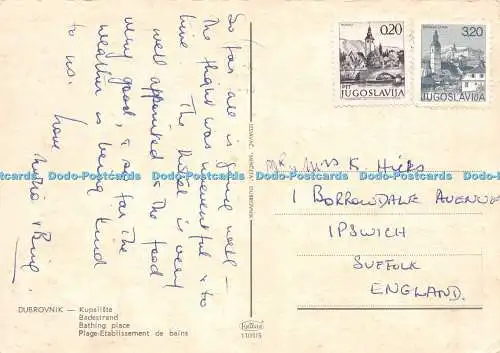 So far all is going well –
The flight was uneventful & to
time. The Hotel is very
well appointed & the food
very good, & so far the
weather is being kind
to us.
love
DUBROVNIK — Kupalište
Badestrand
Bathing place
Plage-Etablissement de bains
IZDAVAČ
DUBROVNIK
0,20
PTT JUGOSLAVIJA
3,20
JUGOSLAVIJA
Mr & Miss K. Hicks
1 BORROWDALE AVENUE
IPSWICH
SUFFOLK
ENGLAND.
Dodo-Postcards Dodo-Postcards Dodo-Postcards Dodo-Postcards